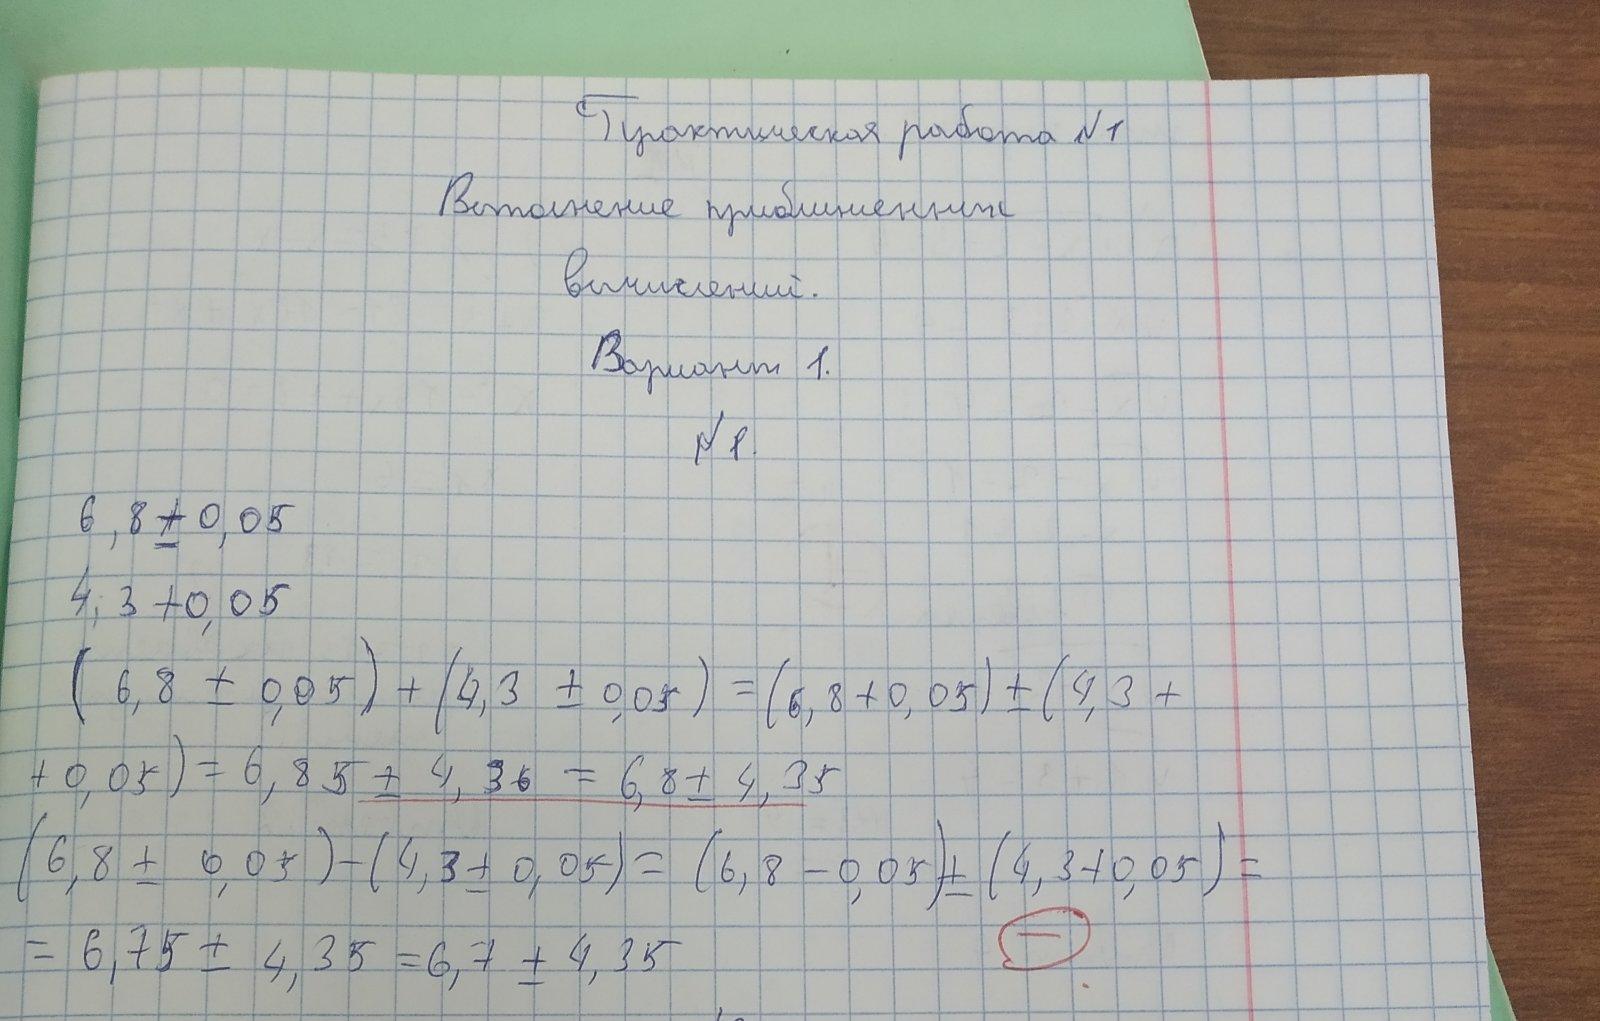 Практическая работа №1
Выполнение приближенных
вычислений.
Вариант 1.
№1.
6,8 ± 0,05
4,3 + 0,05
(6,8 ± 0,05) + (4,3 ± 0,05) = (6,8 + 0,05) ± (4,3 +
+ 0,05) = 6,85 ± 4,36 = 6,8 ± 4,35
(6,8 ± 0,05) - (4,3 ± 0,05) = (6,8 - 0,05) ± (4,3 + 0,05) =
= 6,75 ± 4,35 = 6,7 ± 4,35